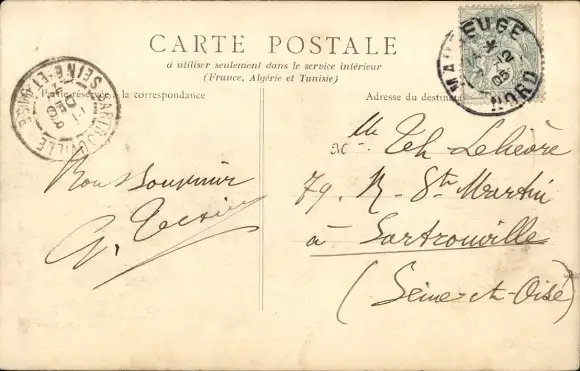 CARTE POSTALE
à utiliser seulement dans le service intérieur
(France, Algérie et Tunisie)
Partie réservée à la correspondance
Adresse du destinataire
MAUBEUGE
2
05
NORD
SARTROUVILLE
SEINE-ET-OISE
Bon Souvenir
G.
79. R. St Martin
à Sartrouville
(Seine-et-Oise)